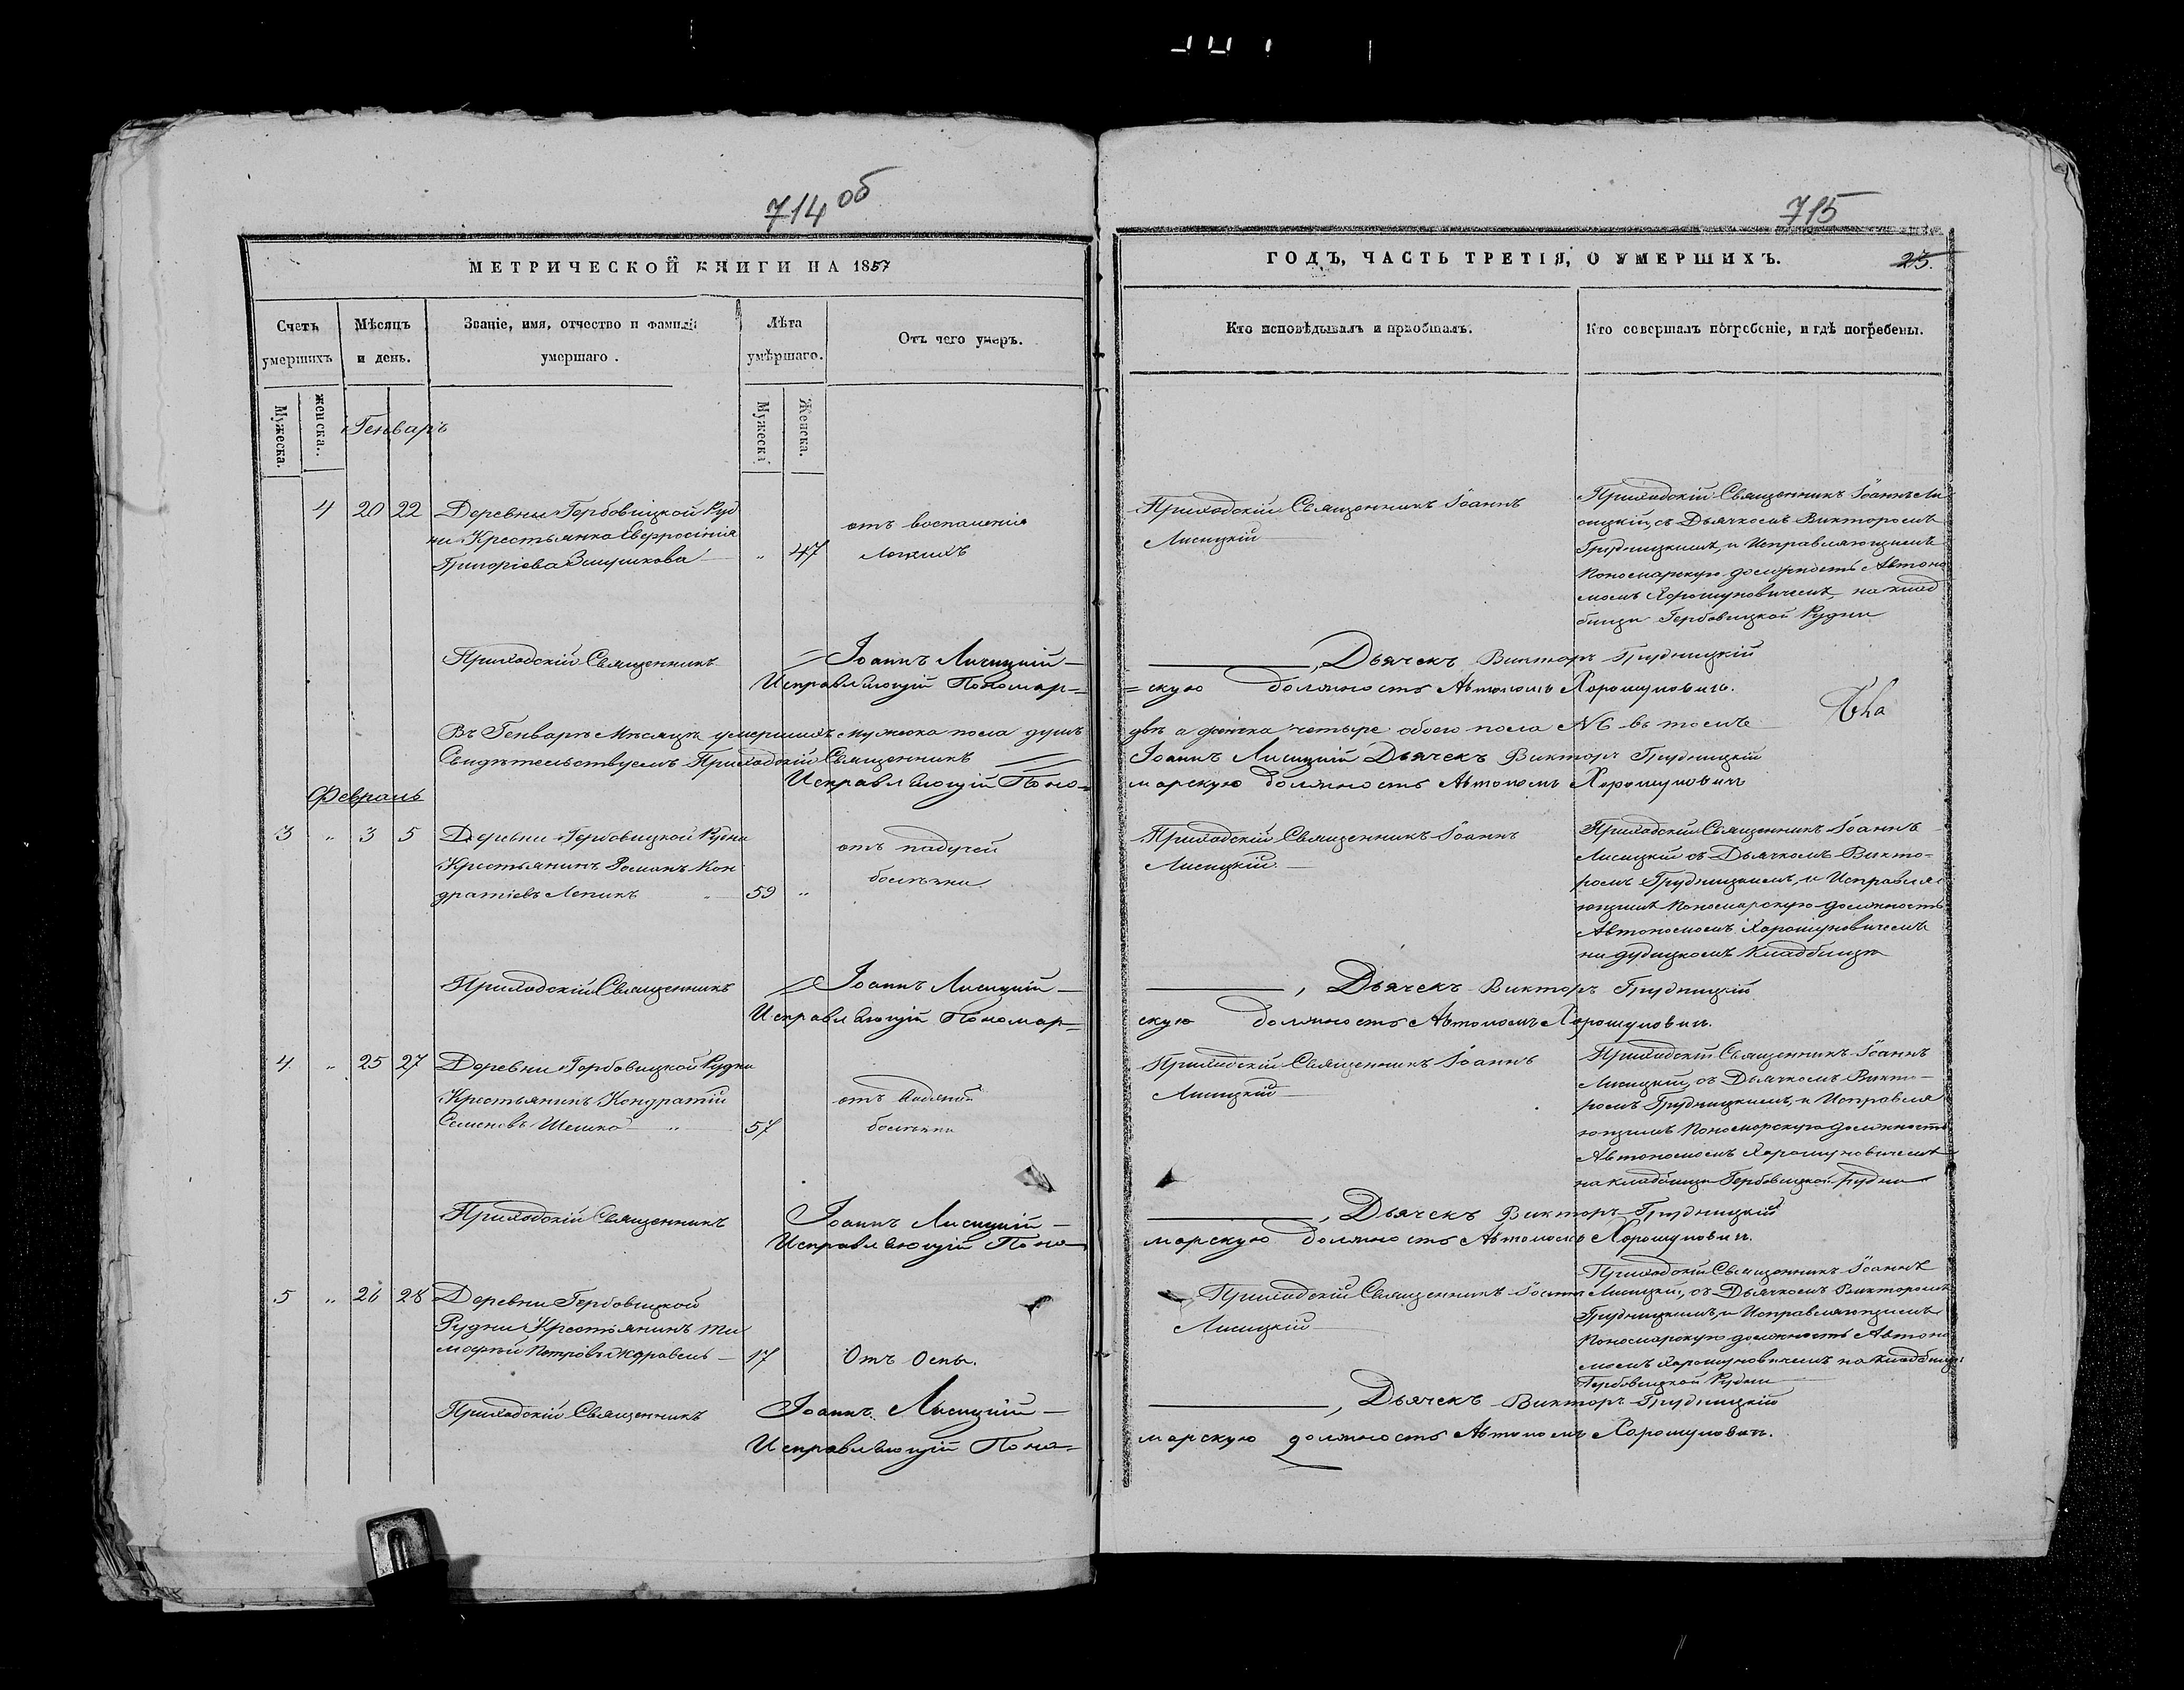 714 об
МЕТРИЧЕСКОЙ КНИГИ НА 1857
Счетъ умершихъ
Мѣсяцъ и день.
Званіе, имя, отчество и фамилія умершаго.
Лѣта умѣршаго.
Отъ чего умеръ.
Мужеска.
женска.
Мужеска
Женска.
Генварь
4 20 22 Деревни Гербовицкой Руд
ни Крестьянка Евфросинія
Григоріева " 47
отъ воспаленія
легкихъ
Приходскій Священникъ Іоаннъ Лисицкій
Исправляющій Пономар=
Въ Генварѣ Мѣсяцѣ умершихъ мужеска пола душъ
Свидѣтельствуемъ Приходскій Священникъ
Исправляющій Поно-
Февраль
3 " 3 5 Деревни Гербовицкой Рудни
Крестьянинъ Романъ Кон
дратіевъ Лепикъ 59 "
отъ падучей
болѣзни
Приходскій Священникъ Іоаннъ Лисицкій
Исправляющій Пономар=
4 " 25 27 Деревни Гербовицкой Рудни
Крестьянинъ Кондратій
Семеновъ 57
отъ
болѣзни
Приходскій Священникъ Іоаннъ Лисицкій
Исправляющій Поно
5 " 26 28 Деревни Гербовицкой
Рудни Крестьянинъ Ти
мофей Петровъ Журавель 17
Отъ Оспы.
Приходскій Священникъ Іоаннъ Лисицкій
Исправляющій Поно=
715
ГОДЪ, ЧАСТЬ ТРЕТІЯ, О УМЕРШИХЪ.
25.
Кто исповѣдывалъ и пріобщалъ.
Кто совершалъ погребеніе, и гдѣ погребены.
Приходскій Священникъ Іоаннъ
Лисицкій
Приходскій Священникъ Іоаннъ Ли
сицкій, съ Дьячкомъ Викторомъ
Грудницкимъ, и Исправляющимъ
Пономарскую должность Автоно
момъ Хорошуновичемъ, на клад
бищи Гербовицкой Рудни
, Дьячекъ Викторъ Грудницкій
=скую должность Автономъ Хорошуновичъ.
двѣ а женска четыре обоего пола № 6 въ томъ
Іоаннъ Лисицкій Дьячекъ Викторъ Грудницкій
марскую должность Автономъ Хорошуновичъ
Приходскій Священникъ Іоаннъ
Лисицкій
Приходскій Священникъ Іоаннъ
Лисицкій съ Дьячкомъ Викто=
ромъ Грудницкимъ, и Исправля
ющимъ Пономарскую должность
Автономомъ Хорошуновичемъ
на дудицкомъ Кладбищи
, Дьячекъ Викторъ Грудницкій
скую должность Автономъ Хорошуновичъ.
Приходскій Священникъ Іоаннъ
Лисицкій
Приходскій Священникъ Іоаннъ
Лисицкій, съ Дьячкомъ Викто-
ромъ Грудницкимъ, и Исправля
ющимъ Пономарскую должность
Автономомъ Хорошуновичемъ
на кладбищи Гербовицкой Рудни
, Дьячекъ Викторъ Грудницкій
марскую должность Автономъ Хорошуновичъ.
Приходскій Священникъ Іоаннъ
Лисицкій
Приходскій Священникъ Іоаннъ
Лисицкій, съ Дьячкомъ Викторомъ
Грудницкимъ, и Исправляющимъ
Пономарскую должность Автоно
момъ Хорошуновичемъ на кладбищи
Гербовицкой Рудни
, Дьячекъ Викторъ Грудницкій
марскую должность Автономъ Хорошуновичъ.